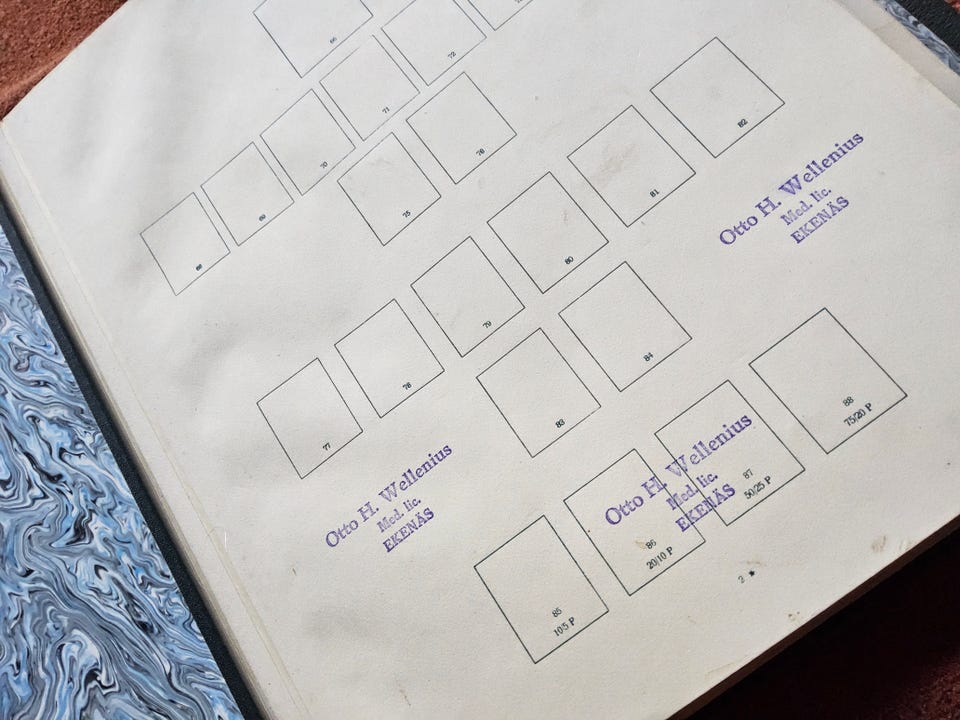 66
71
72
68
69
70
75
76
81
82
Otto H. Wellenius
Med. lic.
EKENÄS
77
78
79
80
83
84
Otto H. Wellenius
Med. lic.
EKENÄS
Otto H. Wellenius
Med. lic.
EKENÄS
85
10/5 P
86
20/10 P
87
50/25 P
88
75/20 P
2 *